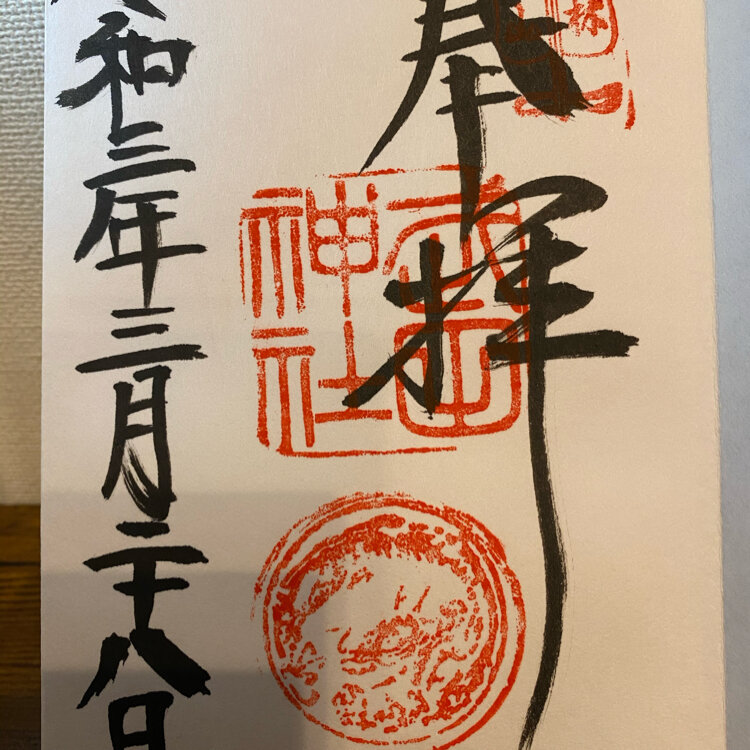 奉拝
神社
和三年三月二十八日